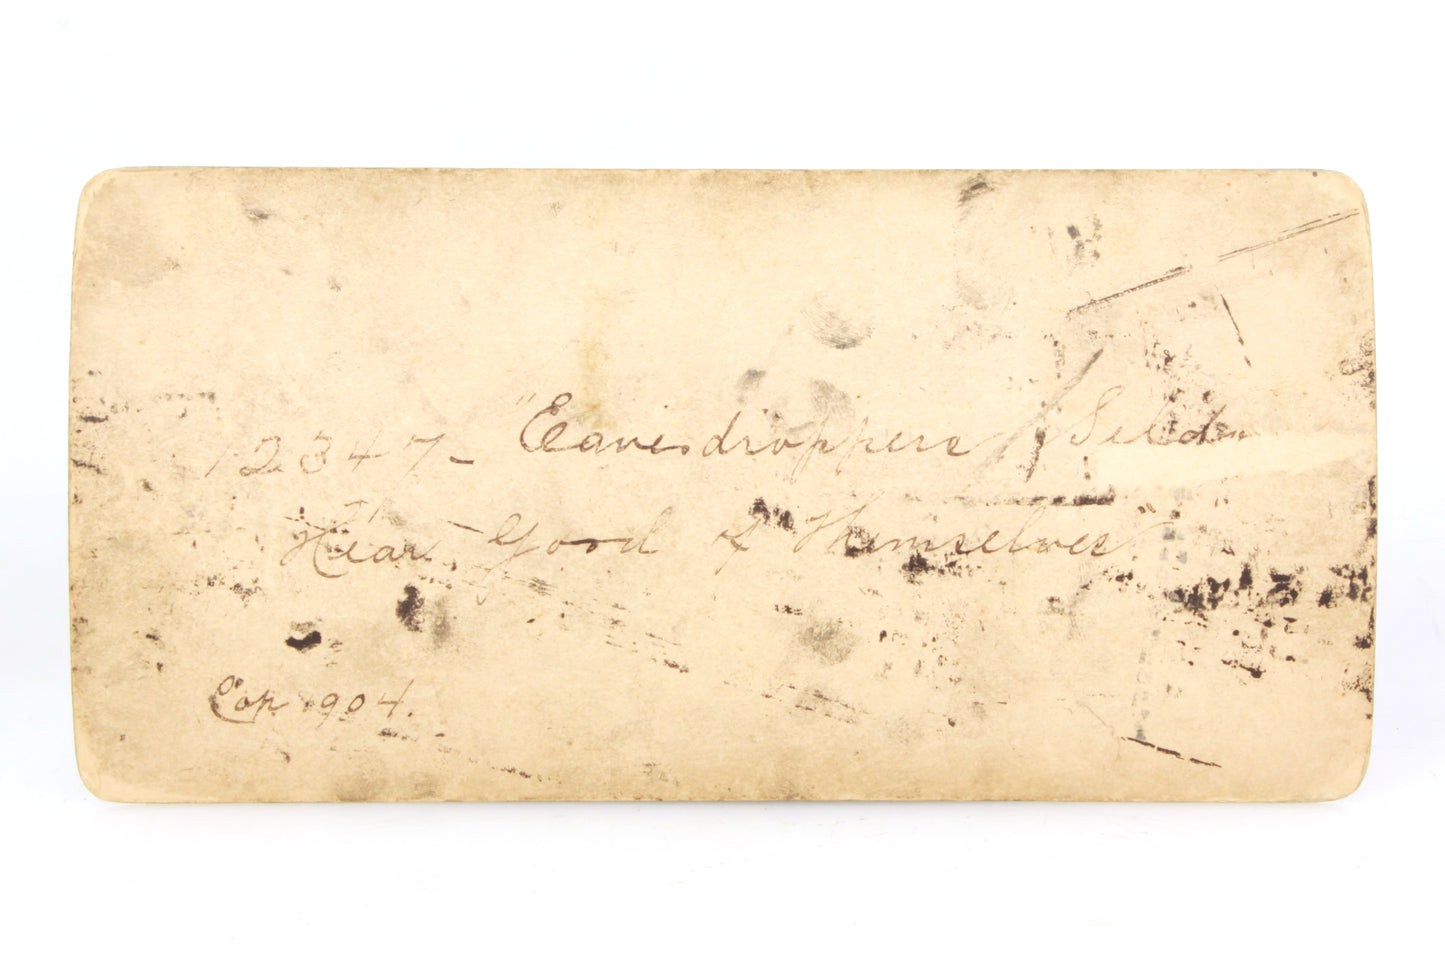 12347- "Eavesdroppers Seldom
Hear Good of Themselves"
Cop 1904.